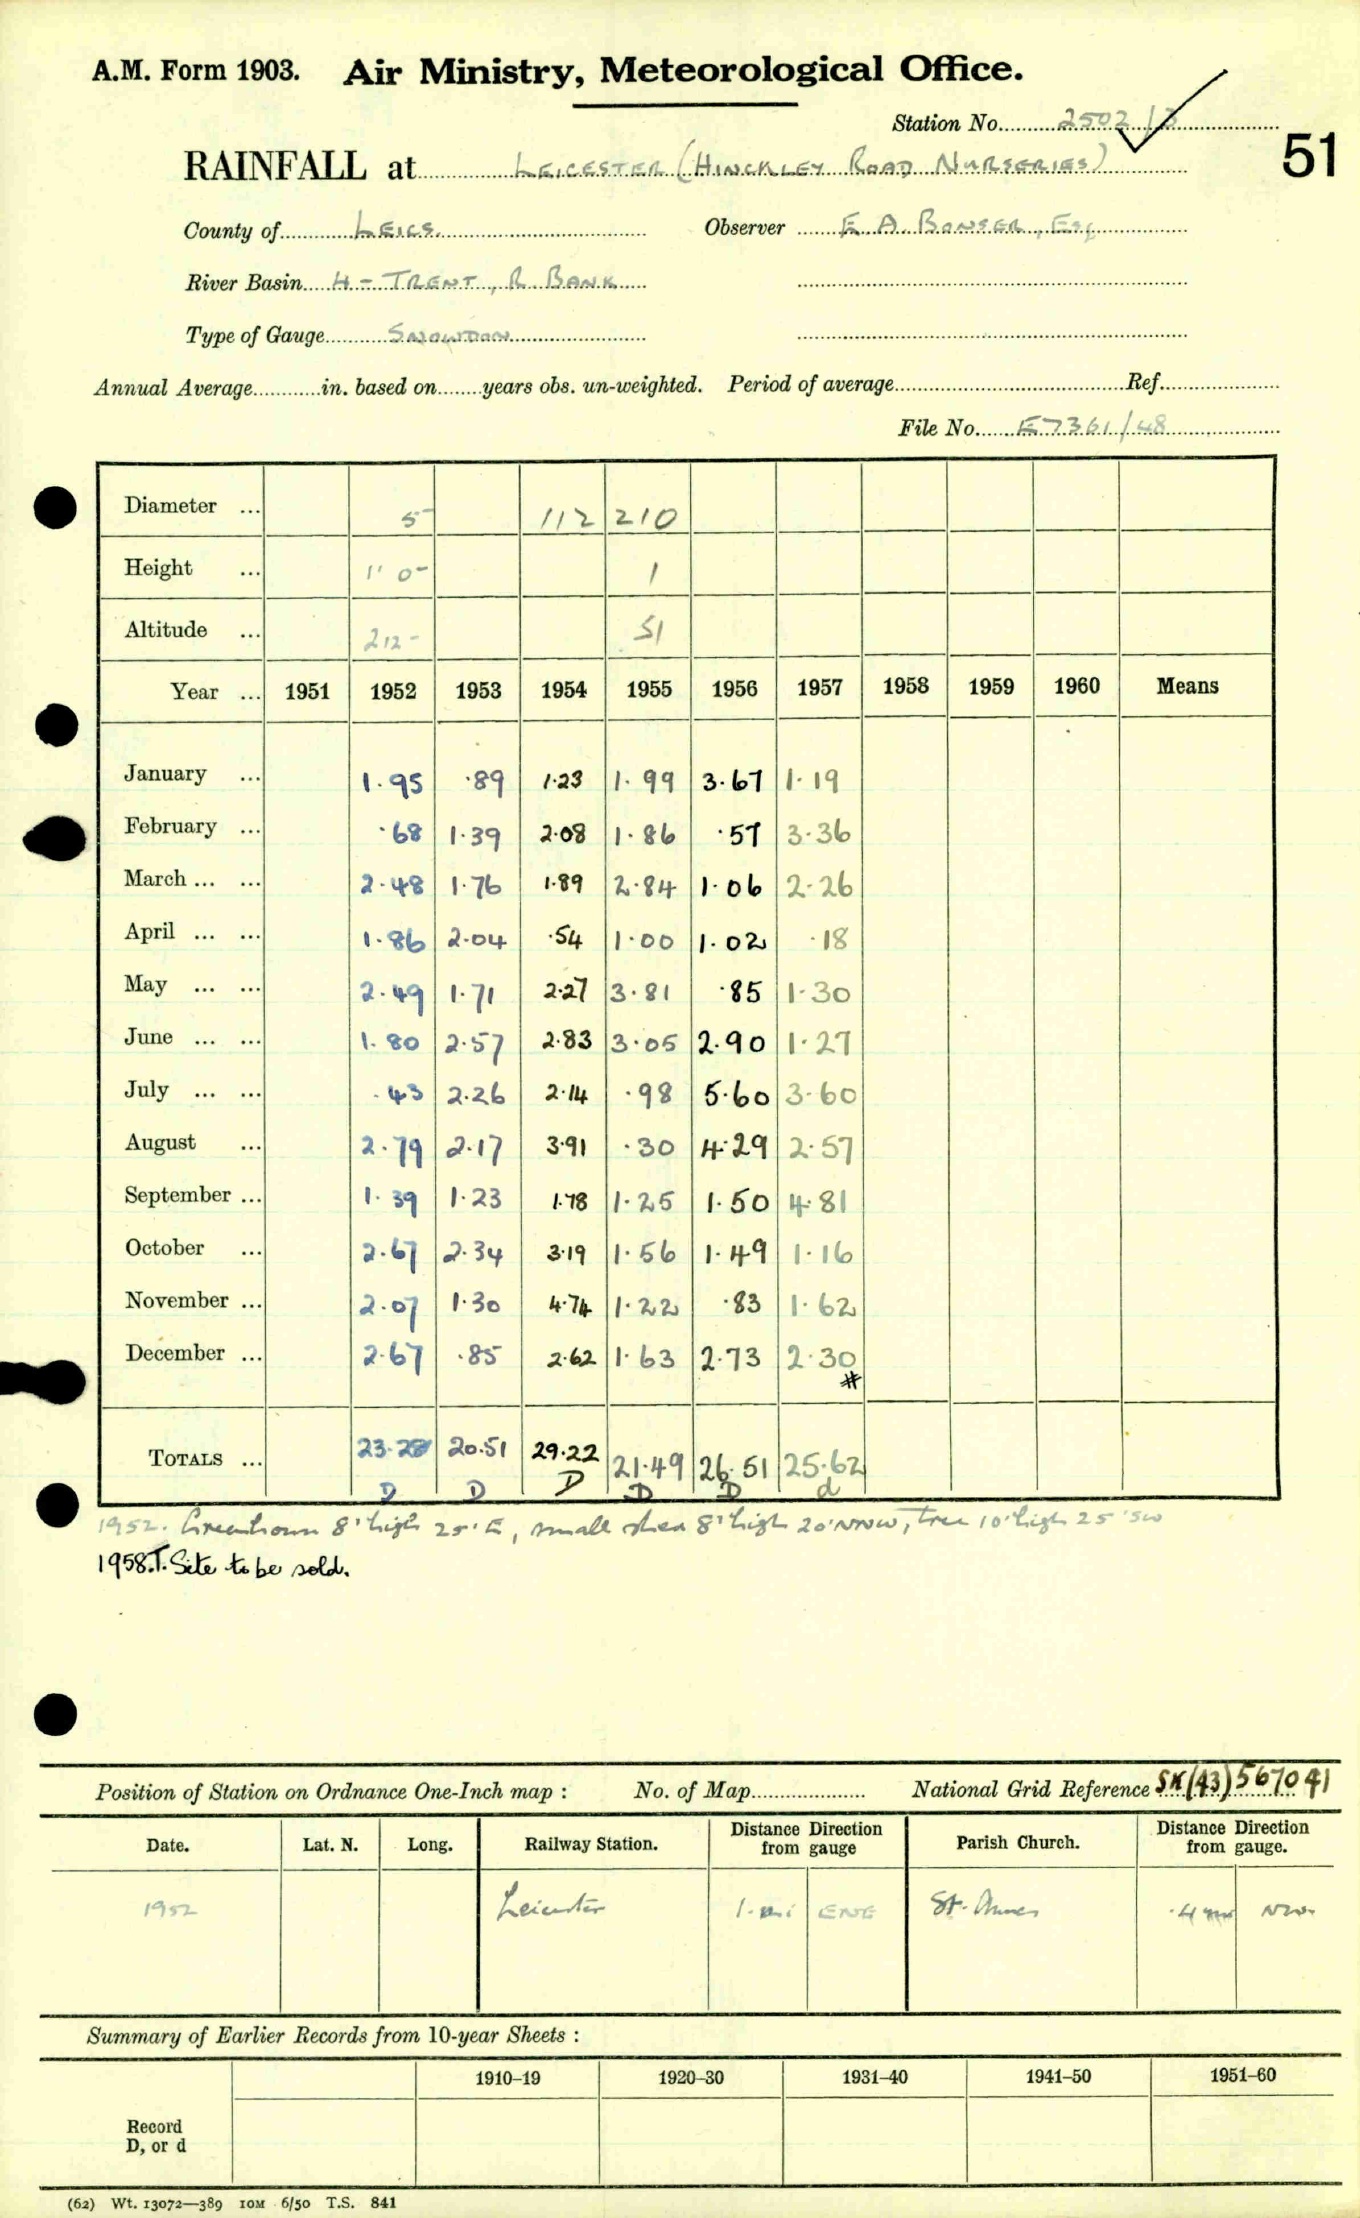 A.M. Form 1903. Air Ministry, Meteorological Office.
Station No. 2502/3
51
RAINFALL at LEICESTER (HINCKLEY ROAD NURSERIES)
County of LEICS. Observer E A. BONSER, Esq
River Basin 4 - TRENT, R. BANK
Type of Gauge SNOWDON
Annual Average in. based on years obs. un-weighted. Period of average Ref.
File No. E7361/48
Diameter ... 5 112 210
Height ... 1' 0 1
Altitude ... 212 51
Year ... 1951 1952 1953 1954 1955 1956 1957 1958 1959 1960 Means
January ... 1.95 .89 1.23 1.99 3.67 1.19
February ... .68 1.39 2.08 1.86 .57 3.36
March ... ... 2.48 1.76 1.89 2.84 1.06 2.26
April ... ... 1.86 2.04 .54 1.00 1.02 .18
May ... ... 2.49 1.71 2.27 3.81 .85 1.30
June ... ... 1.80 2.57 2.83 3.05 2.90 1.27
July ... ... .43 2.26 2.14 .98 5.60 3.60
August ... 2.79 2.17 3.91 .30 4.29 2.57
September ... 1.39 1.23 1.78 1.25 1.50 4.81
October ... 2.67 2.34 3.19 1.56 1.49 1.16
November ... 2.07 1.30 4.74 1.22 .83 1.62
December ... 2.67 .85 2.62 1.63 2.73 2.30
#
TOTALS ... 23.28 20.51 29.22 21.49 26.51 25.62
D D D D D d
1952. Greenhouse 8' high 25' E, small shed 8' high 20' NNW, tree 10' high 25' SW
1958.T. Site to be sold.
Position of Station on Ordnance One-Inch map : No. of Map National Grid Reference SK(43)567041
Date. Lat. N. Long. Railway Station. Distance from gauge Direction Parish Church. Distance from gauge. Direction
1952 Leicester 1. mi ENE St. Annes .4 mi NW.
Summary of Earlier Records from 10-year Sheets :
1910–19 1920–30 1931–40 1941–50 1951–60
Record
D, or d
(62) Wt. 13072—389 10M 6/50 T.S. 841